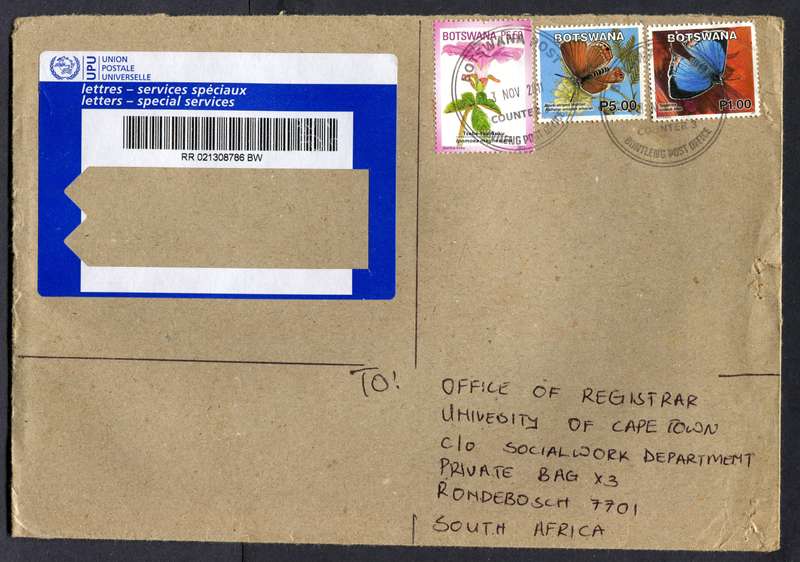 UPU
UNION
POSTALE
UNIVERSELLE
lettres – services spéciaux
letters – special services
RR 021308786 BW
BOTSWANA
BOTSWANA
P5.00
BOTSWANA
P1.00
BOTSWANA POST
NOV
COUNTER
COUNTER 3
BONTLENG POST OFFICE
TO!
OFFICE OF REGISTRAR
UNIVESITY OF CAPE TOWN
C/O SOCIALWORK DEPARTMEMT
PRIVATE BAG X3
RONDEBOSCH 7701
SOUTH AFRICA